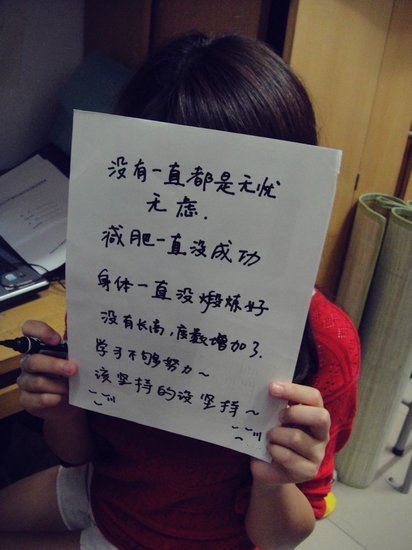 没有一直都是无忧
无虑.
减肥一直没成功
身体一直没煅炼好
没有长高,度数增加了.
学习不够努力~
该坚持的没坚持~